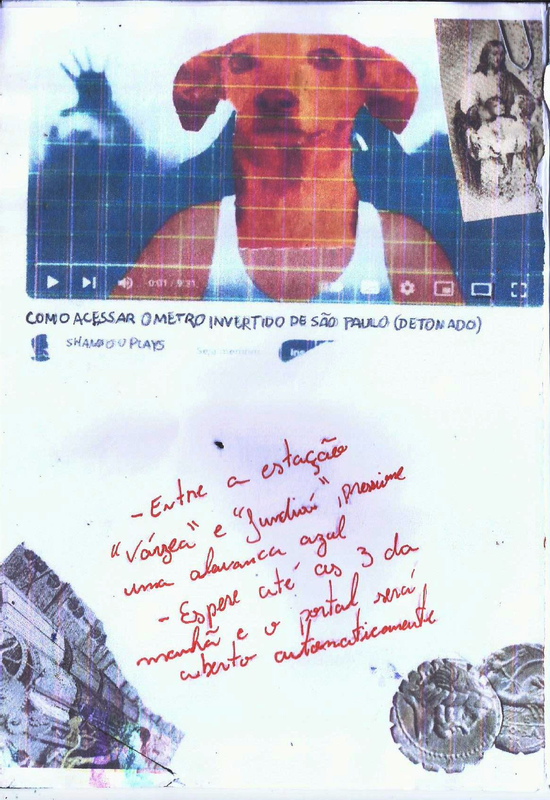 0:01 / 9:31
COMO ACESSAR O METRO INVERTIDO DE SÃO PAULO (DETONADO)
PLAYS
- Entre a estação
"Várzea" e "Jundiaí", pressione
uma alavanca azul
- Espere até as 3 da
manhã e o portal será
aberto automaticamente